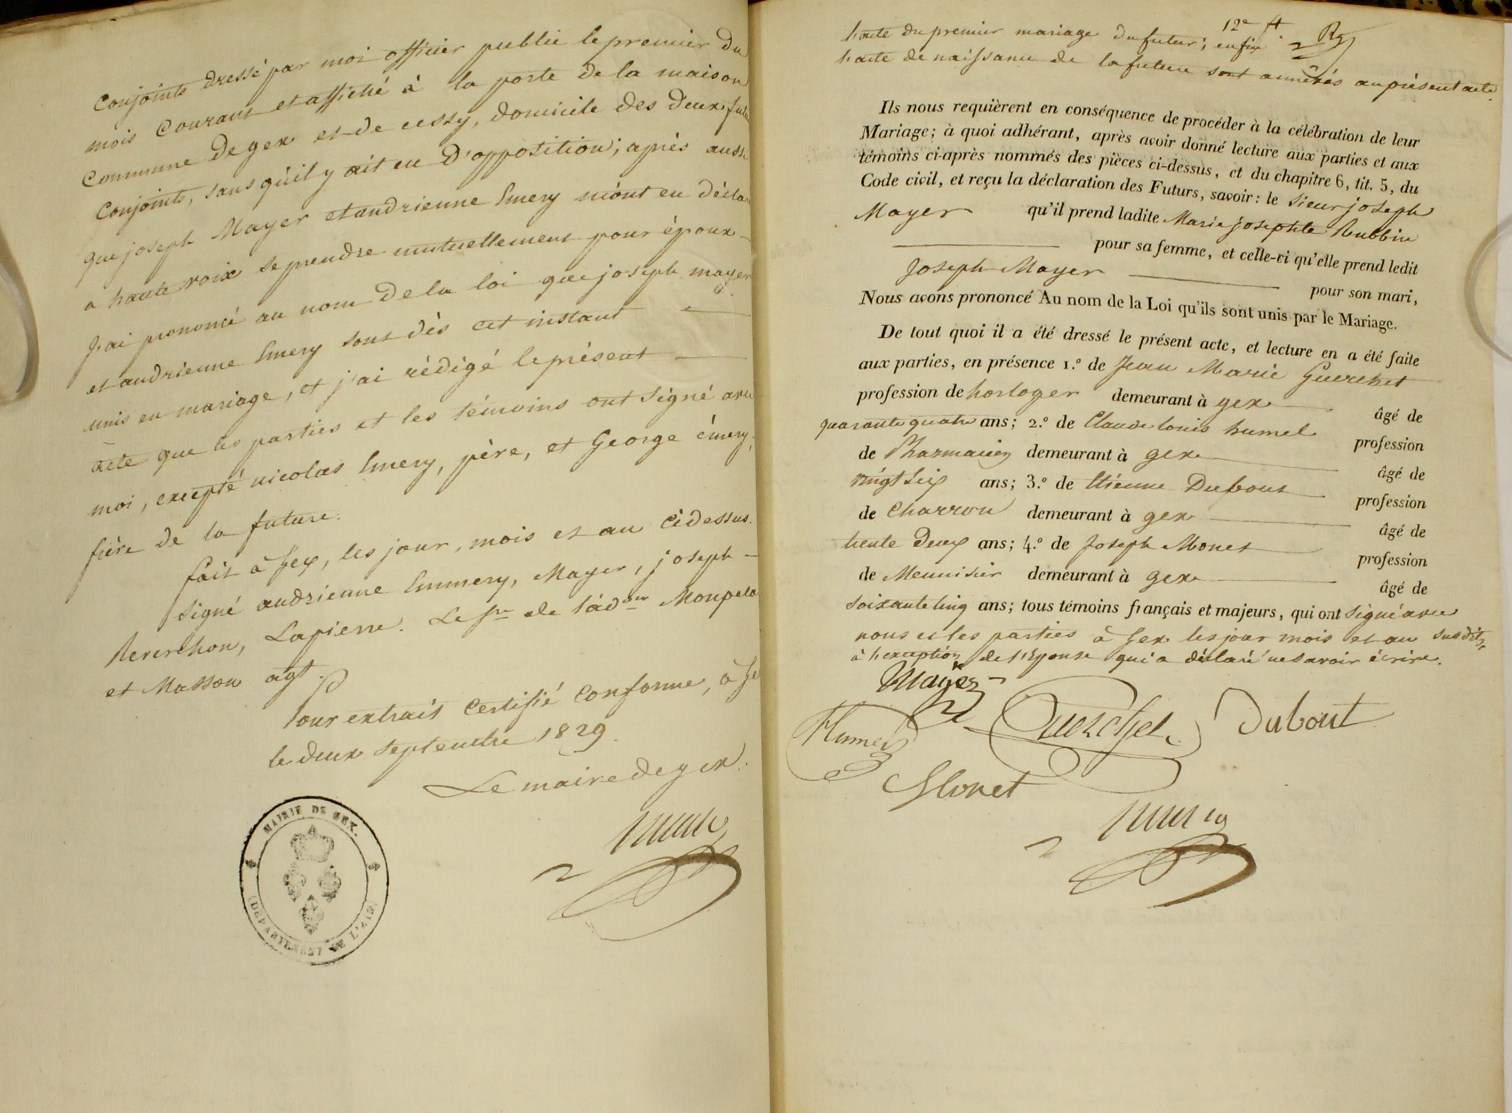 Conjoints dressé par moi officier public le premier du
mois Courant et affiché à la porte de la maison
Commune de gex et de cessy, domicile des deux futu
Conjoints, sans qu'il y ait eu D'opposition; après aussi
que joseph Mayer et andrienne Emery m'ont eu décla
a haute voix se prendre mutuellement pour époux
J'ai prononcé au nom de la loi que joseph mayer
et andrienne Emery sont dès cet instant
unis en mariage, et j'ai rédigé le présent
acte que les parties et les témoins ont signé avec
moi, excepté nicolas Emery, père, et George émery,
frère de la future.
fait à Gex, les jour, mois et an cidessus.
signé andrienne Emmery, Mayer, joseph
Reverchon, Lapierre. Le Sre de l'ádon Monpela
et Masson agt.
Pour extrait certifié conforme, à Ge
le deux septembre 1829.
Le maire de gex.
MAIRIE DE GEX.
(DÉPARTEMENT DE L'AIN)
12e ft
l'acte du premier mariage du futur; enfin
l'acte de naissance de la future sont annéxés au présent acte.
Ils nous requièrent en conséquence de procéder à la célébration de leur
Mariage; à quoi adhérant, après avoir donné lecture aux parties et aux
témoins ci-après nommés des pièces ci-dessus, et du chapitre 6, tit. 5, du
Code civil, et reçu la déclaration des Futurs, savoir: le sieur joseph
Mayer qu'il prend ladite Marie josephte Rubbin
pour sa femme, et celle-ci qu'elle prend ledit
Joseph Mayer pour son mari,
Nous avons prononcé Au nom de la Loi qu'ils sont unis par le Mariage.
De tout quoi il a été dressé le présent acte, et lecture en a été faite
aux parties, en présence 1.º de Jean Marie Guerchet
profession de horloger demeurant à gex âgé de
quarante quatre ans; 2.º de Claude Louis humel profession
de Pharmacien demeurant à gex âgé de
vingt six ans; 3.º de Etienne Dubout profession
de Charron demeurant à gex âgé de
trente deux ans; 4.º de Joseph Monet profession
de Menuisier demeurant à gex âgé de
soixante cinq ans; tous témoins français et majeurs, qui ont signé avec
nous et les parties à Gex les jour mois et an susdits
à l'exception de l'Epouse qui a déclaré ne savoir écrire.
Mayer
Humel Guerchet Dubout
Monet